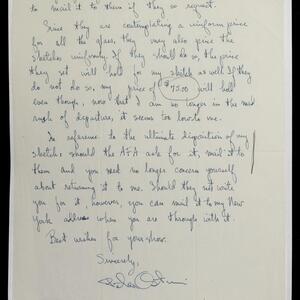 to mail it to them if they so request.
Since they are contemplating a uniform price
for all the glass, they may also price the
sketches uniformly. If they should do so, the price
they set will hold for my sketch as well. If they
do not do so, my price of $75.00 will hold
even though, now that I am no longer in the mad
rush of departure, it seems too low to me.
In reference to the ultimate disposition of my
sketch: should the AFA ask for it, mail it to
them and you need no longer concern yourself
about returning it to me. Should they not write
you for it, however, you can mail it to my New
York address when you are through with it.
Best wishes for your show.
Sincerely,